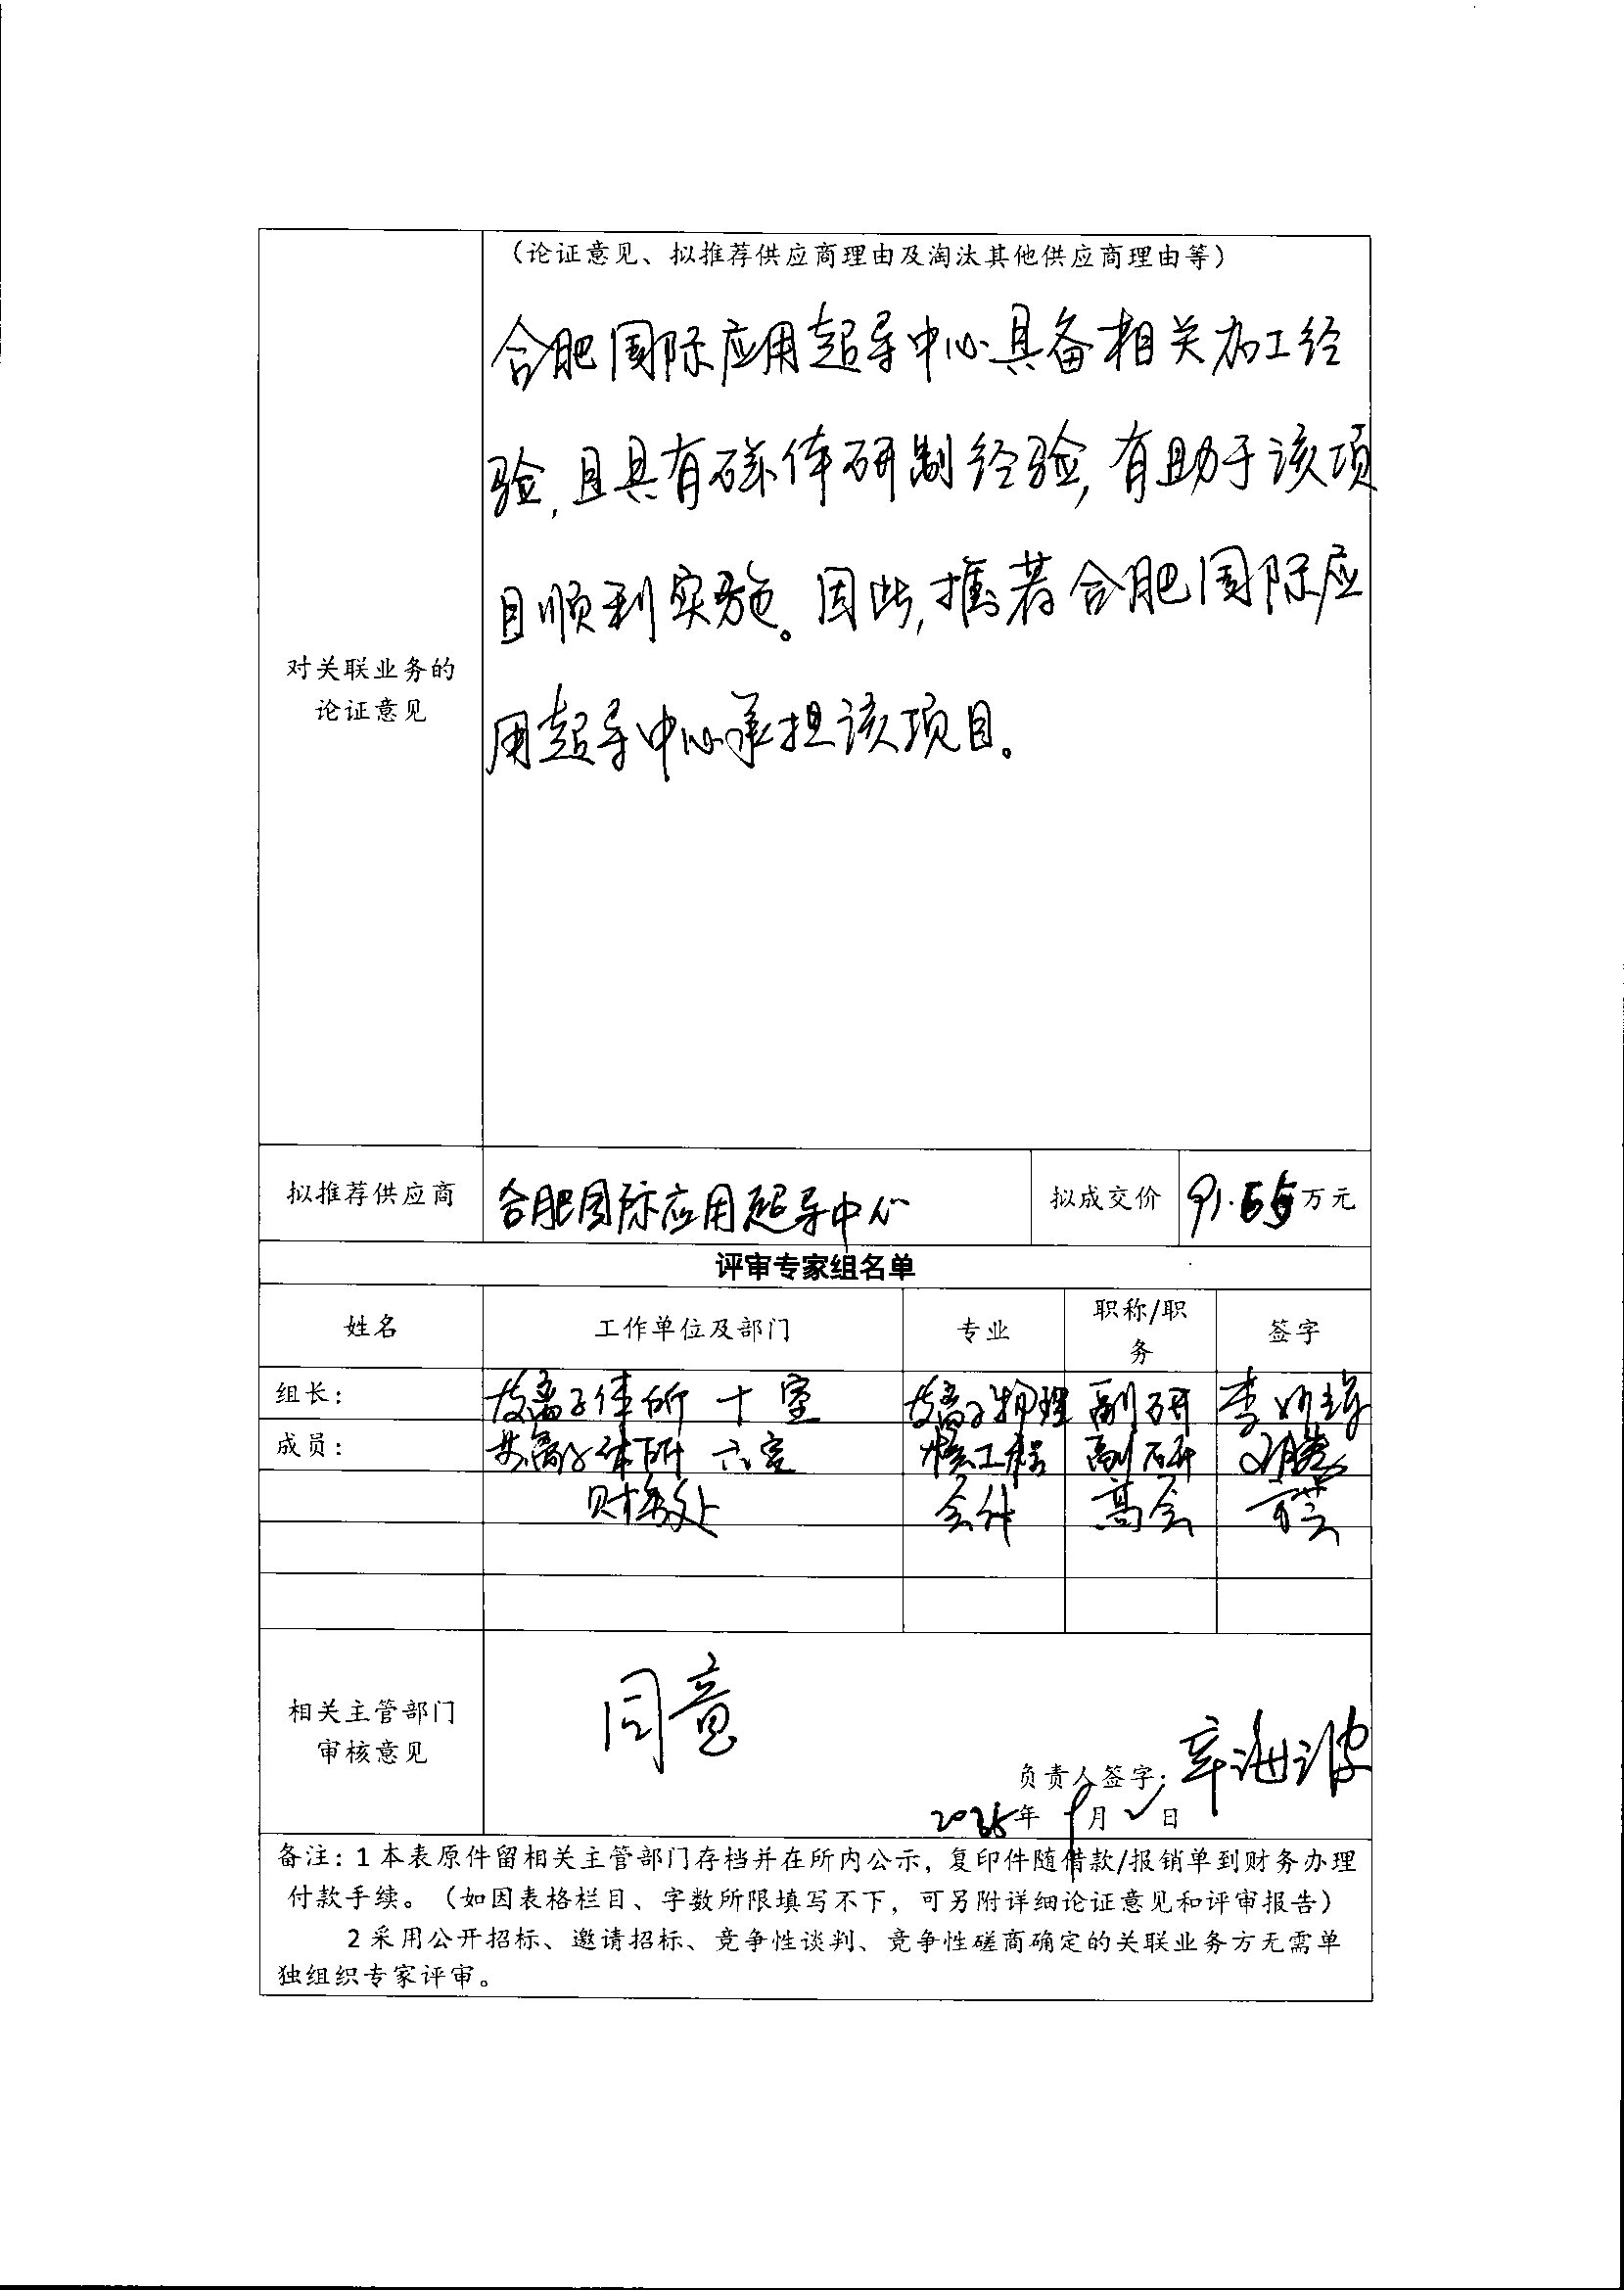 （论证意见、拟推荐供应商理由及淘汰其他供应商理由等）
合肥国际应用超导中心具备相关加工经
验，且具有磁体研制经验，有助于该项
目顺利实施。因此，推荐合肥国际应
用超导中心承担该项目。
对关联业务的
论证意见
拟推荐供应商 合肥国际应用超导中心 拟成交价 91.55万元
评审专家组名单
姓名 工作单位及部门 专业 职称/职务 签字
组长： 等离子体所 十室 等离子物理 副研
成员： 等离子体所 六室 核工程 副研
财务处 会计 高会
相关主管部门
审核意见
同意
负责人签字：辛海波
2025年9月2日
备注：1 本表原件留相关主管部门存档并在所内公示，复印件随借款/报销单到财务办理
付款手续。（如因表格栏目、字数所限填写不下，可另附详细论证意见和评审报告）
2 采用公开招标、邀请招标、竞争性谈判、竞争性磋商确定的关联业务方无需单
独组织专家评审。